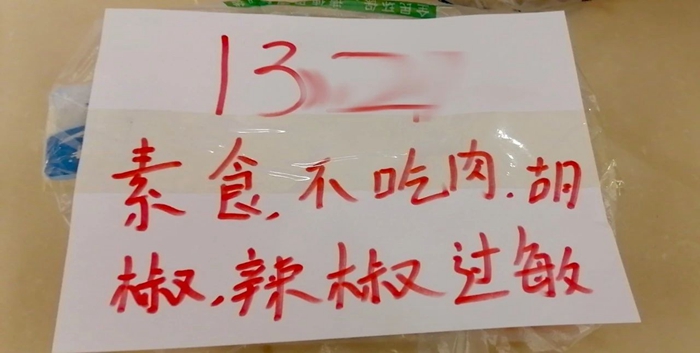 13
素食,不吃肉.胡
椒,辣椒过敏